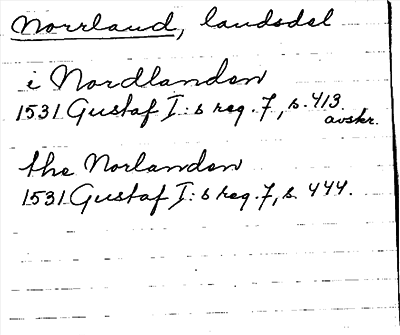 Norrland, landsdel
i Nordlanden
1531 Gustaf I:s reg. 7, s. 413.
avskr.
the Norlanden
1531 Gustaf I:s reg. 7, s. 444.